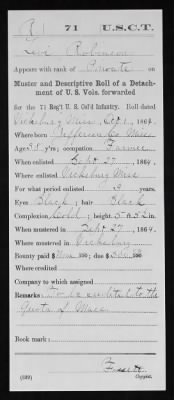 R | 71 | U.S.C.T.
Levi Robinson
Appears with rank of Private on
Muster and Descriptive Roll of a Detach-
ment of U. S. Vols. forwarded
for the 71 Reg't U. S. Col'd Infantry. Roll dated
Vicksburg, Miss, Oct 1, 1864.
Where born Jefferson Co Miss
Age 38 y'rs; occupation Farmer
When enlisted Sept 27, 1864.
Where enlisted Vicksburg Miss
For what period enlisted 3 years.
Eyes Black; hair Black
Complexion Cold; height 5 ft. 5½ in.
When mustered in Sept 27, 1864.
Where mustered in Vicksburg
Bounty paid $ None 100; due $ 300 00 100
Where credited
Company to which assigned
Remarks: To be credited to the
Quota of Mass
Book mark:
(339)
Copyist.